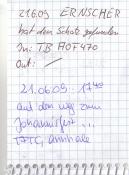 21.6.09 ERNSCHER
hat den Schatz gefunden
In: TB HOF470
Out: /
21.06.09 17⁴⁰
auf den weg zum
Johannisfest ...
TFTC,